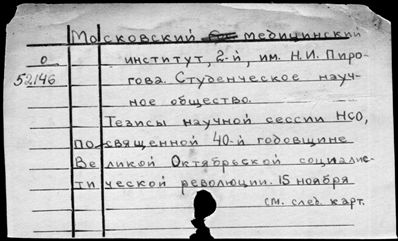 Московский медицинский
О институт, 2-й, им. Н.И. Пиро-
52146 гова. Студенческое науч-
ное общество.
Тезисы научной сессии НСО,
посвященной 40-й годовщине
Великой Октябрьской социалис-
тической революции. 15 ноября
см. след. карт.